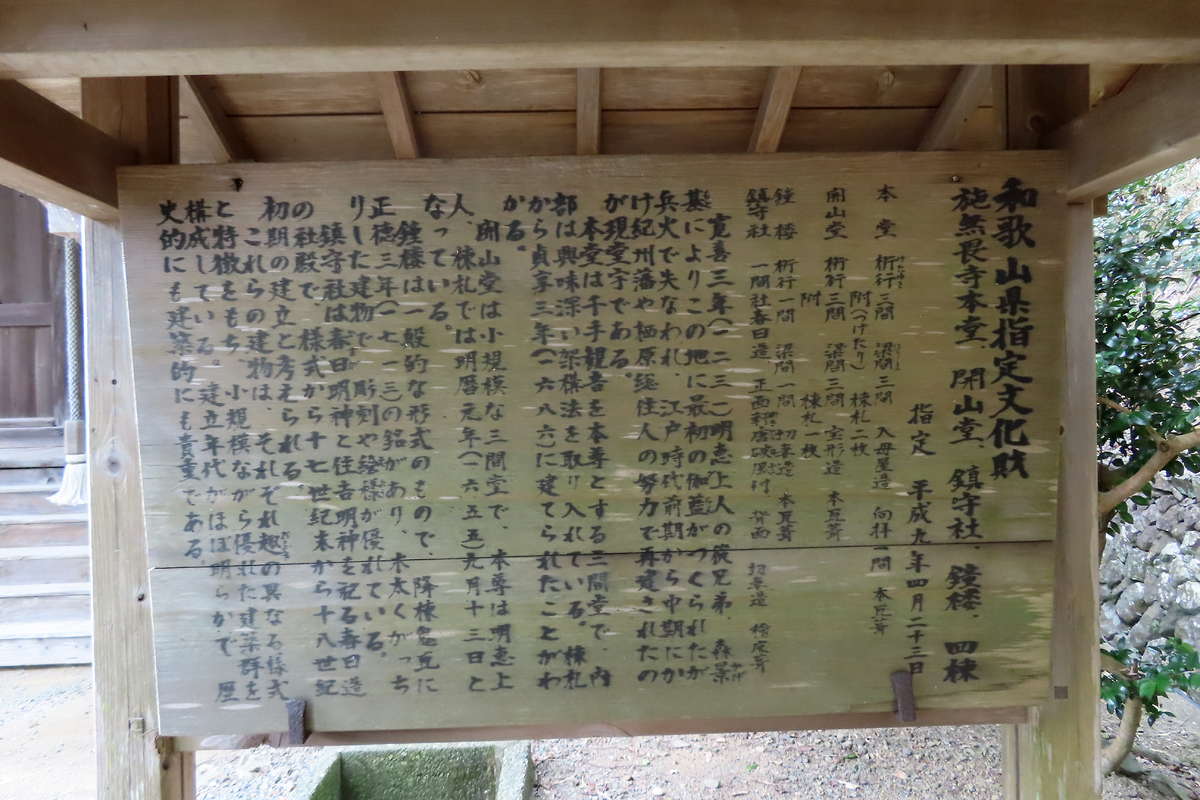 和歌山県指定文化財
施無畏寺本堂、開山堂、鎮守社、鐘楼、四棟
指定 平成九年四月二十三日
本堂 桁行三間 梁間三間 入母屋造 向拝一間 本瓦葺
附(つけたり) 棟札一枚
開山堂 桁行三間 梁間三間 宝形造 本瓦葺
附 棟札一枚
鐘楼 桁行一間 梁間一間 切妻造 本瓦葺
鎮守社 一間社春日造 正面軒唐破風付 背面 切妻造 檜皮葺
寛喜三年(一二三一)明恵上人の従兄弟、森景
基によりこの地に最初の伽藍がつくられたが
兵火で失なわれ、江戸時代前期から中期にか
け紀州藩や栖原総住人の努力で再建されたの
が現堂宇である。
本堂は千手観音を本尊とする三間堂で、内
部は興味深い架構法を取り入れている。棟札
から貞享三年(一六八六)に建てられたことがわ
かる。
開山堂は小規模な三間堂で、本尊は明恵上
人、棟札では明暦元年(一六五五)九月十三日と
なっている。
鐘楼は一般的な形式のもので、降棟鬼瓦に
正徳三年(一七一三)の銘があり、木太くがっち
りした建物で彫刻や絵様が優れている。
鎮守社は春日明神と住吉明神を祀る春日造
の社殿で、様式から十七世紀末から十八世紀
初期の建立と考えられる。
これらの建物は、それぞれ趣の異なる様式
と特徴をもち、小規模ながら優れた建築群を
構成している。建立年代がほぼ明らかで、歴
史的にも建築的にも貴重である。